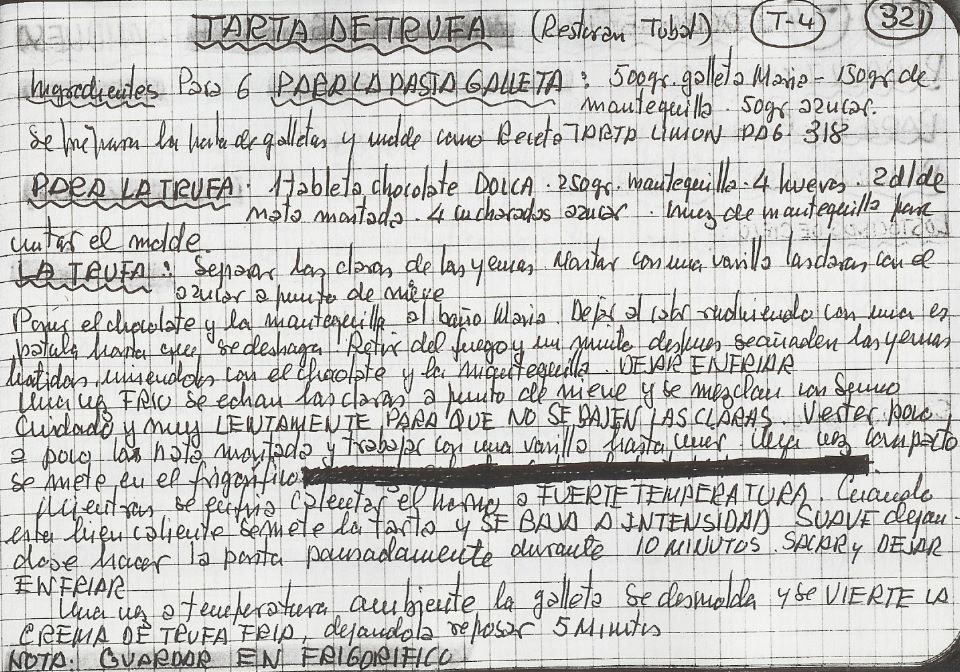 TARTA DE TRUFA (Restoran Tubal) T-4 321
Ingredientes Para 6 PARA LA PASTA GALLETA : 500gr. galleta Maria - 150gr de
mantequilla. 50gr azucar.
Se prepara la pasta de galletas y molde como Receta TARTA LIMON PAG. 318
PARA LA TRUFA. 1 tableta chocolate DOLCA. 250gr. mantequilla. 4 huevos. 2 dl de
nata montada. 4 cucharadas azucar. nuez de mantequilla para
untar el molde.
LA TRUFA : Separar las claras de las yemas. Montar con una varilla las claras con el
azucar a punto de nieve
Poner el chocolate y la mantequilla al baño Maria. Dejar al calor removiendo con una es
patula hasta que se deshaga. Retirar del fuego y un minuto despues se añaden las yemas
batidas, uniendolas con el chocolate y la mantequilla. DEJAR ENFRIAR
Una vez FRIO se echan las claras a punto de nieve y se mezclan con Sumo
Cuidado y muy LENTAMENTE PARA QUE NO SE BAJEN LAS CLARAS. Verter poco
a poco la nata montada y trabajar con una varilla hasta unir. Una vez compacto
se mete en el frigorifico
Mientras se enfria calentar el horno a FUERTE TEMPERATURA. Cuando
este bien caliente se mete la tarta y SE BAJA A INTENSIDAD SUAVE dejan-
dose hacer la pasta pausadamente durante 10 MINUTOS. SACAR y DEJAR
ENFRIAR
Una vez a temperatura ambiente la galleta se desmolda y se VIERTE LA
CREMA DE TRUFA FRIA, dejandola reposar 5 Minutos
NOTA: GUARDAR EN FRIGORIFICO